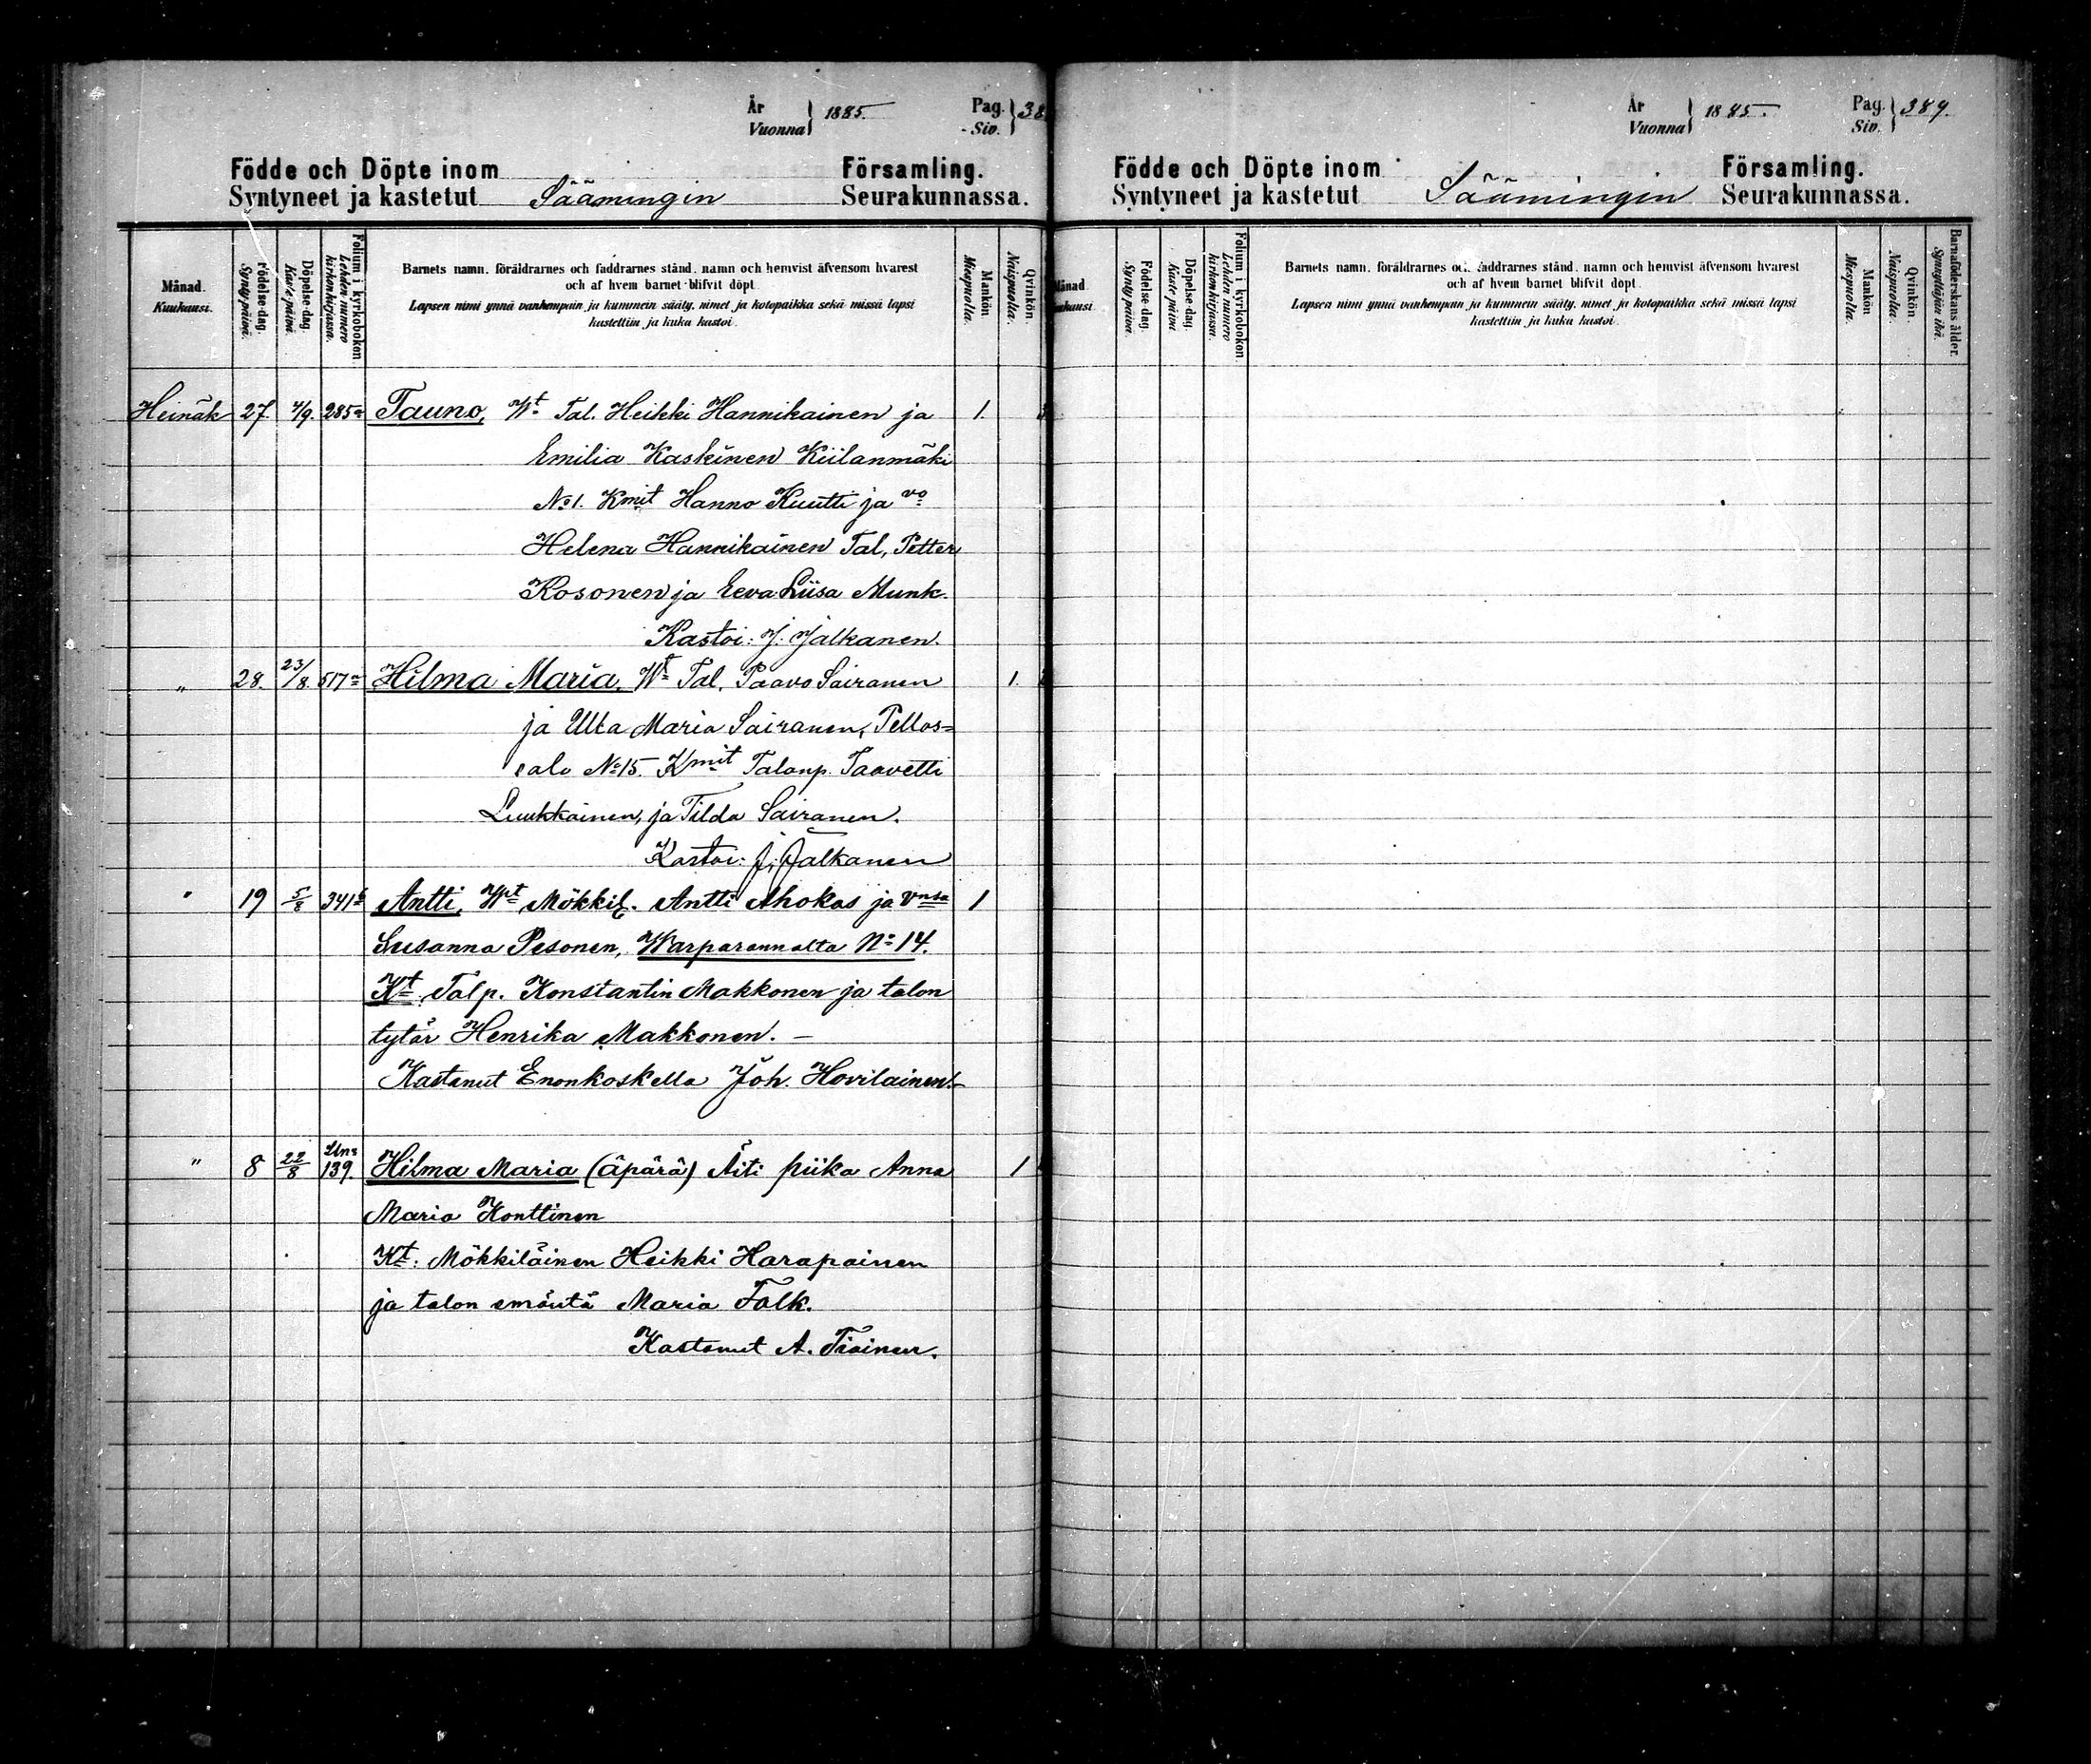 År
Vuonna 1885. Pag. Siv. 38
Födde och Döpte inom Församling.
Syntyneet ja kastetut Säämingin Seurakunnassa.
Månad. Kuukausi.
Födelse-dag. Synty päivä.
Döpelse-dag. Kaste päivä.
Folium i kyrkobokon. Lehden numero kirkonkirjassa.
Barnets namn, föräldrarnes och faddrarnes stånd, namn och hemvist äfvensom hvarest
och af hvem barnet blifvit döpt.
Lapsen nimi ynnä vanhempain ja kummein sääty, nimet ja kotopaikka sekä missä lapsi
kastettiin ja kuka kastoi.
Mankön Miespuolia.
Qvinkön. Naispuolia.
Heinäk 27. 4/9. 285 Tauno, Wt Tal. Heikki Hannikainen ja 1.
Emilia Kaskinen Kiilanmäki
No 1. Kmit Hanno Kuutti ja vo
Helena Hannikainen Tal, Petter
Kosonen ja Eeva Liisa Munk.
Kastoi: J. Jalkanen.
" 28. 23/8. 517 Hilma Maria, Wt Tal. Paavo Sairanen 1.
ja Ulla Maria Sairanen, Pellos=
salo No 15. Kmit Talonp. Taavetti
Luukkainen, ja Tilda Sairanen.
Kastoi: J. Jalkanen
" 19 5/8 341 Antti, Wt Mökkil. Antti Ahokas ja vnsa 1
Susanna Pesonen, Warparannalta No 14.
Kt Talp. Konstantin Makkonen ja talon
tytär Henrika Makkonen. —
Kastanut Enonkoskella Joh. Hovilainen. —
" 8 22/8 139. Hilma Maria (äpärä) Äiti piika Anna 1
Maria Konttinen
Kt: Mökkiläinen Heikki Harapainen
ja talon emäntä Maria Falk.
Kastanut A. Tiainen.
År
Vuonna 1885. Pag. Siv. 389.
Födde och Döpte inom Församling.
Syntyneet ja kastetut Säämingin Seurakunnassa.
Månad. Kuukausi.
Födelse-dag. Synty päivä.
Döpelse-dag. Kaste päivä.
Folium i kyrkobokon. Lehden numero kirkonkirjassa.
Barnets namn, föräldrarnes och faddrarnes stånd, namn och hemvist äfvensom hvarest
och af hvem barnet blifvit döpt.
Lapsen nimi ynnä vanhempain ja kummein sääty, nimet ja kotopaikka sekä missä lapsi
kastettiin ja kuka kastoi.
Mankön Miespuolia.
Qvinkön. Naispuolia.
Barnaföderskans ålder. Synnyttäjän ikä.